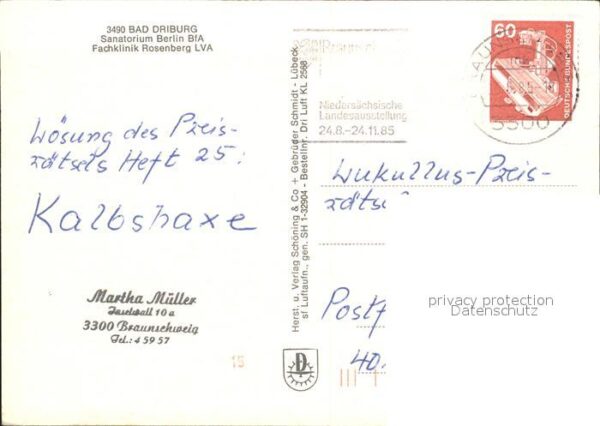 3490 BAD DRIBURG
Sanatorium Berlin BfA
Fachklinik Rosenberg LVA
Lösung des Preis-
rätsels Heft 25:
Kalbshaxe
Martha Müller
Inselwall 10 a
3300 Braunschweig
Tel.: 4 59 57
15
Herst. u. Verlag Schöning & Co + Gebrüder Schmidt - Lübeck
sf Luftaufn., gen. SH 1-32904 - Bestellnr. Dri Luft KL 2568
Niedersächsische
Landesausstellung
24.8.-24.11.85
60
DEUTSCHE BUNDESPOST
3300
Lukullus-Preis-
rätse
Postf
40.
privacy protection
Datenschutz